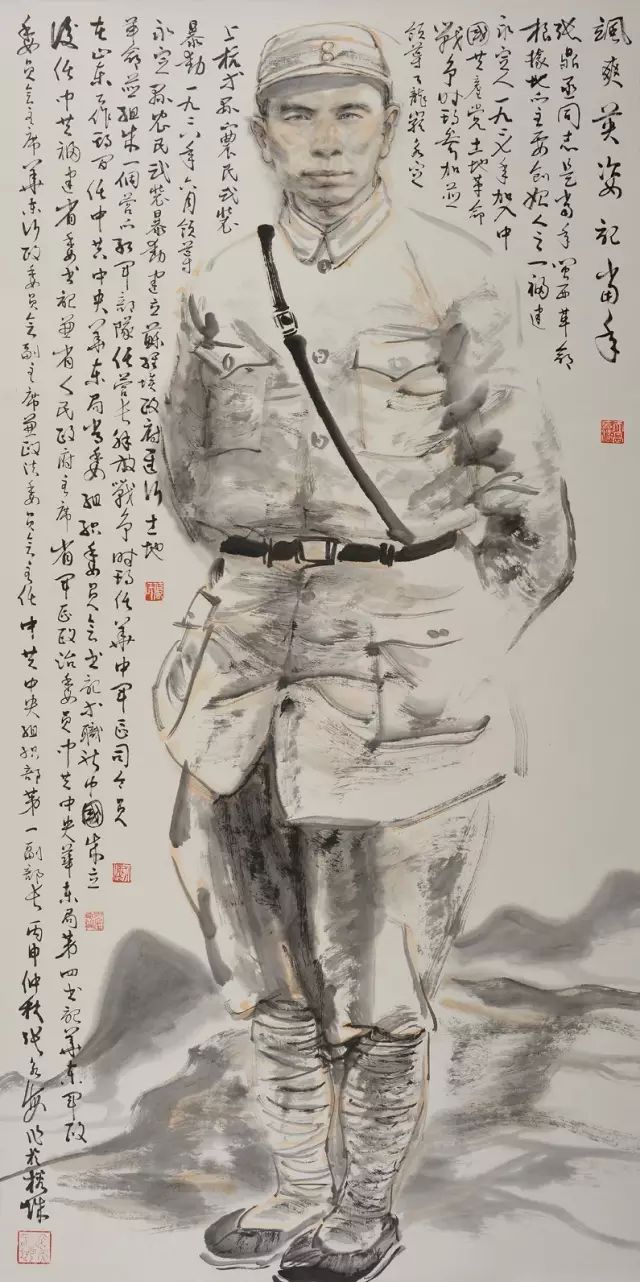 飒爽英姿记当年
张鼎丞同志是当年闽西革命
根据地的主要创始人之一福建
永定人一九二七年加入中
国共产党土地革命
战争时期参加并
领导了龙岩永定
上杭等县农民武装
暴动一九二八年六月领导
永定县农民武装暴动建立苏维埃政府进行土地
革命并组成一个营的红军部队任营长解放战争时期任华中军区司令员
在山东工作期间任中共中央华东局常委组织委员会书记等职新中国成立
后任中共福建省委书记兼省人民政府主席省军区政治委员中共中央华东局第四书记华东军政
委员会主席华东行政委员会副主席兼政法委员会主任中共中央组织部第一副部长丙申仲秋